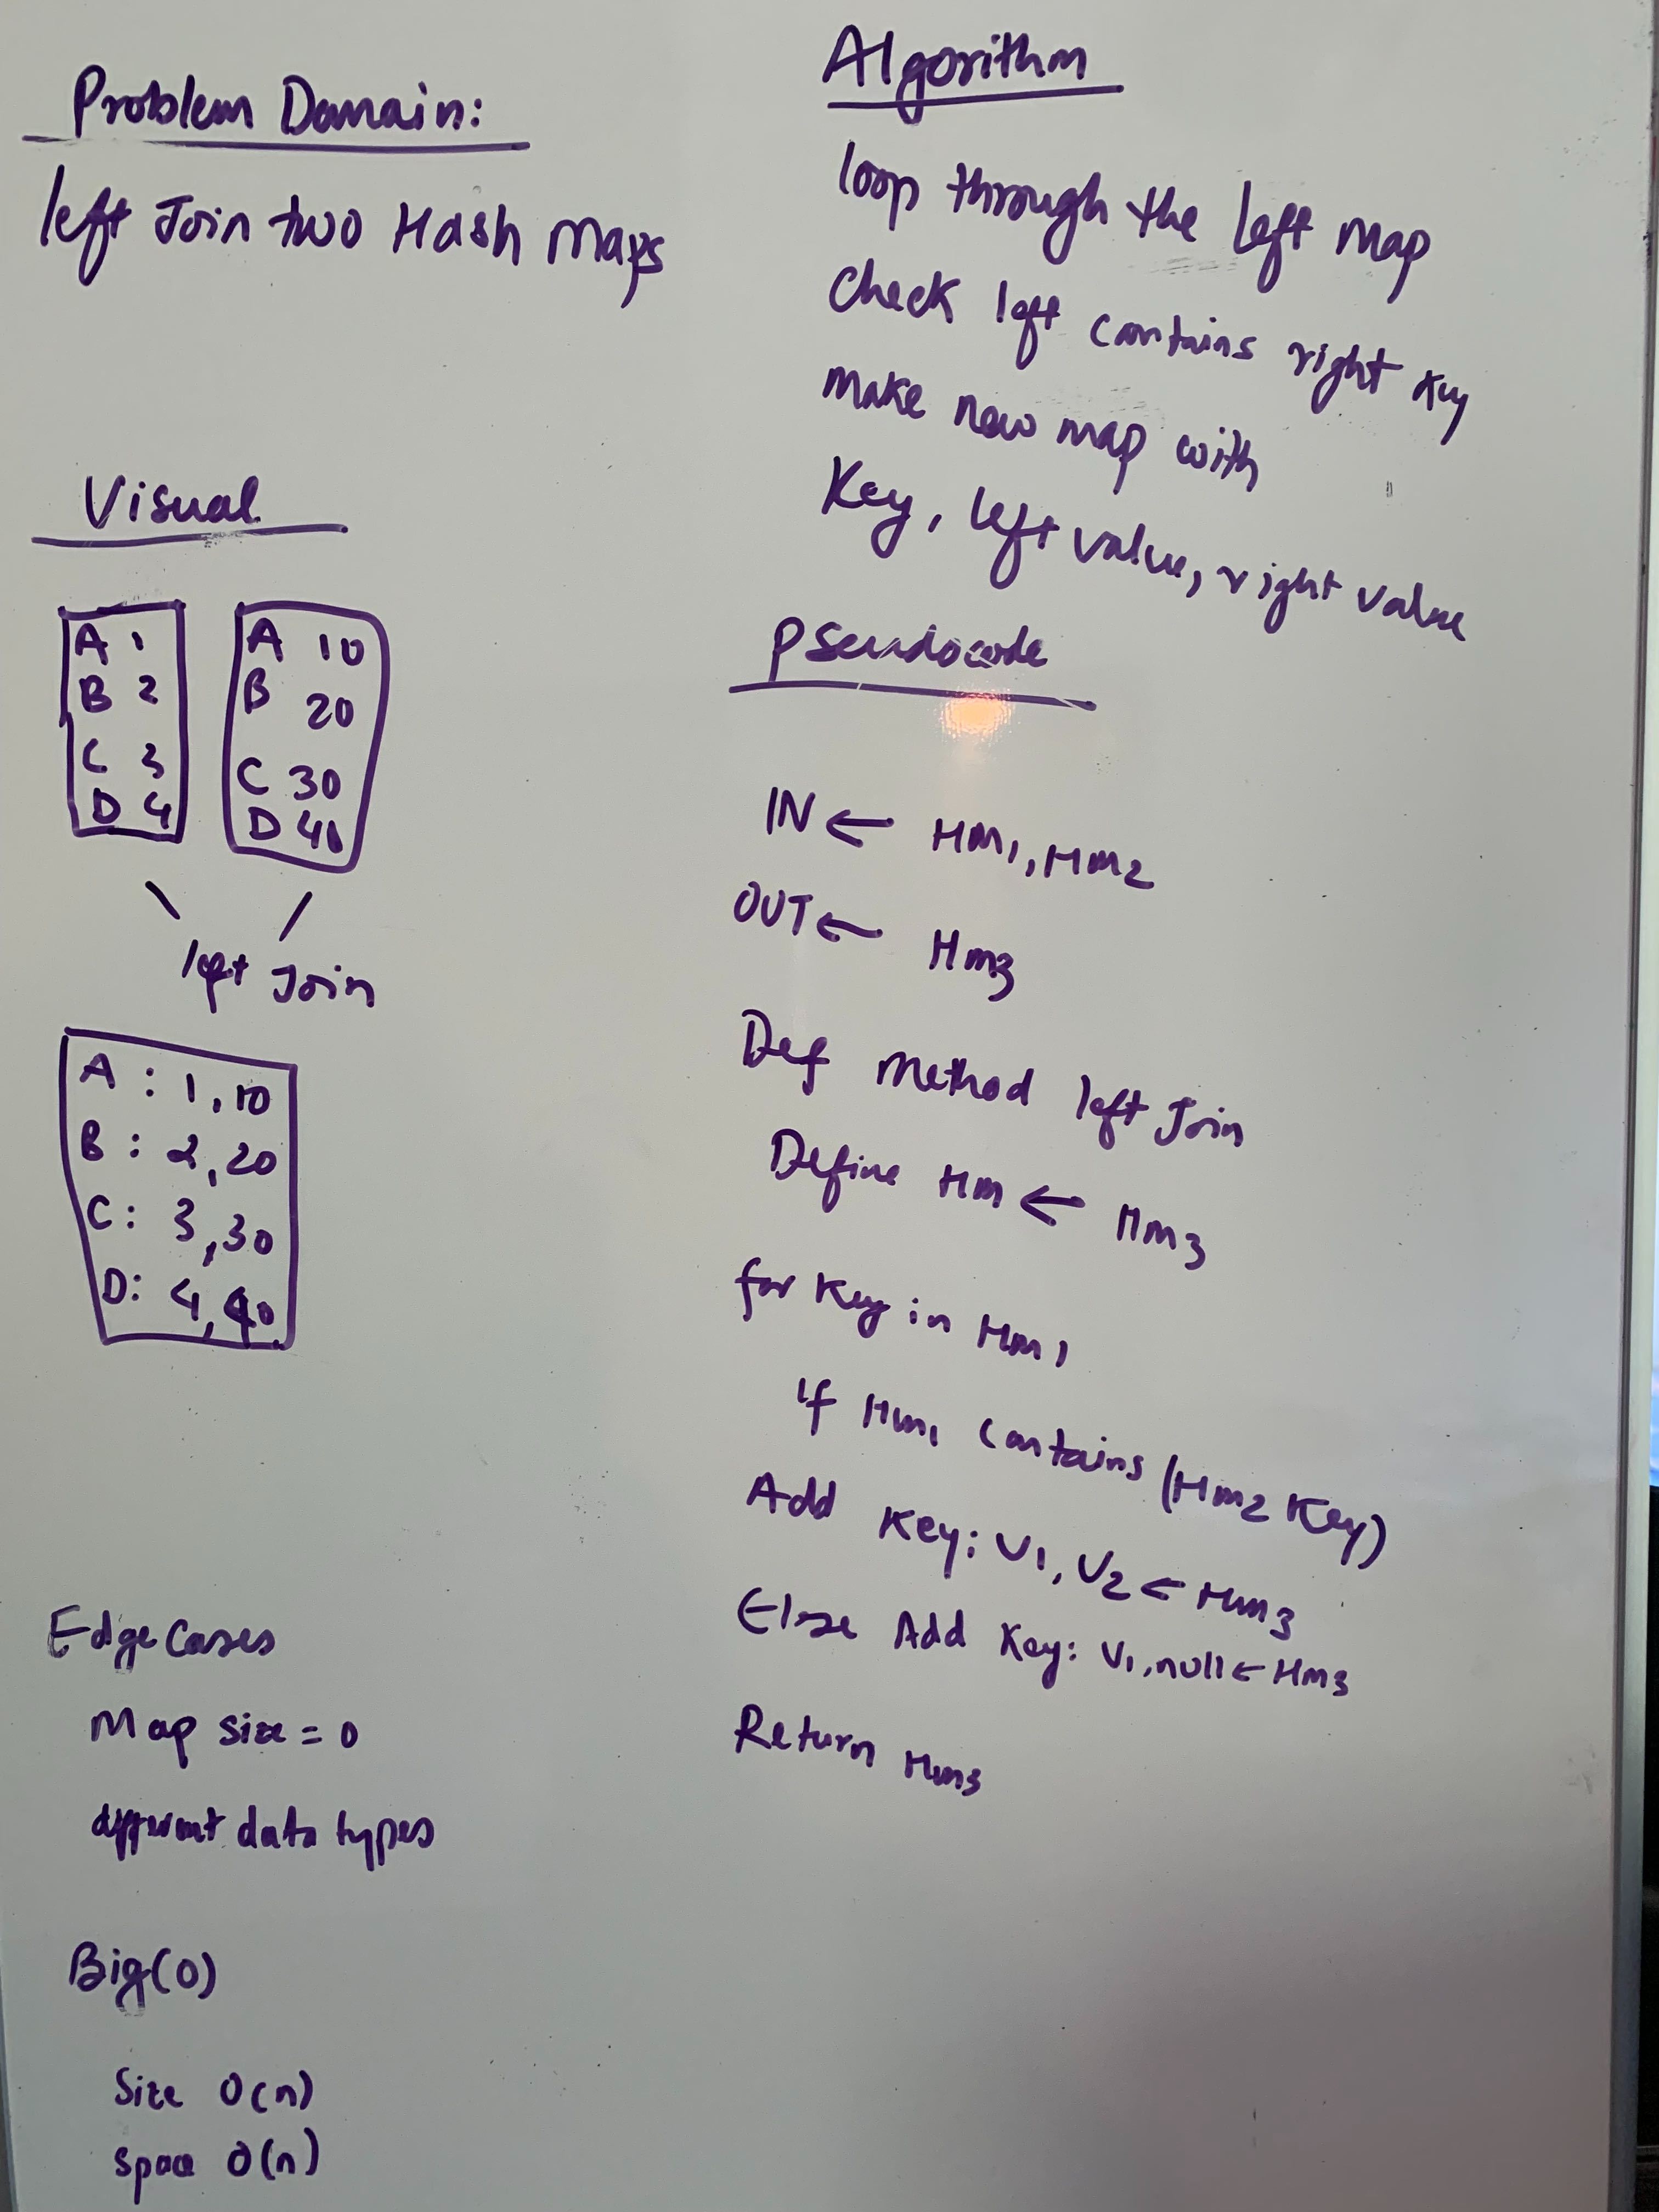 Problem Domain:
left Join two Hash Maps
Visual
A 1
B 2
C 3
D 4
A 10
B 20
C 30
D 40
left Join
A : 1,10
B : 2,20
C : 3,30
D: 4,40
Edge Cases
Map size = 0
different data types
Big(O)
Size O(n)
Space O(n)
Algorithm
loop through the left map
Check left contains right key
make new map with
Key, left value, right value
pseudocode
IN ← HM1, HM2
OUT ← HM3
Def method left Join
Define HM ← HM3
for Key in HM1
if HM1 contains (HM2 Key)
Add Key: V1, V2 ← HM3
Else Add Key: V1, null ← HM3
Return HM3